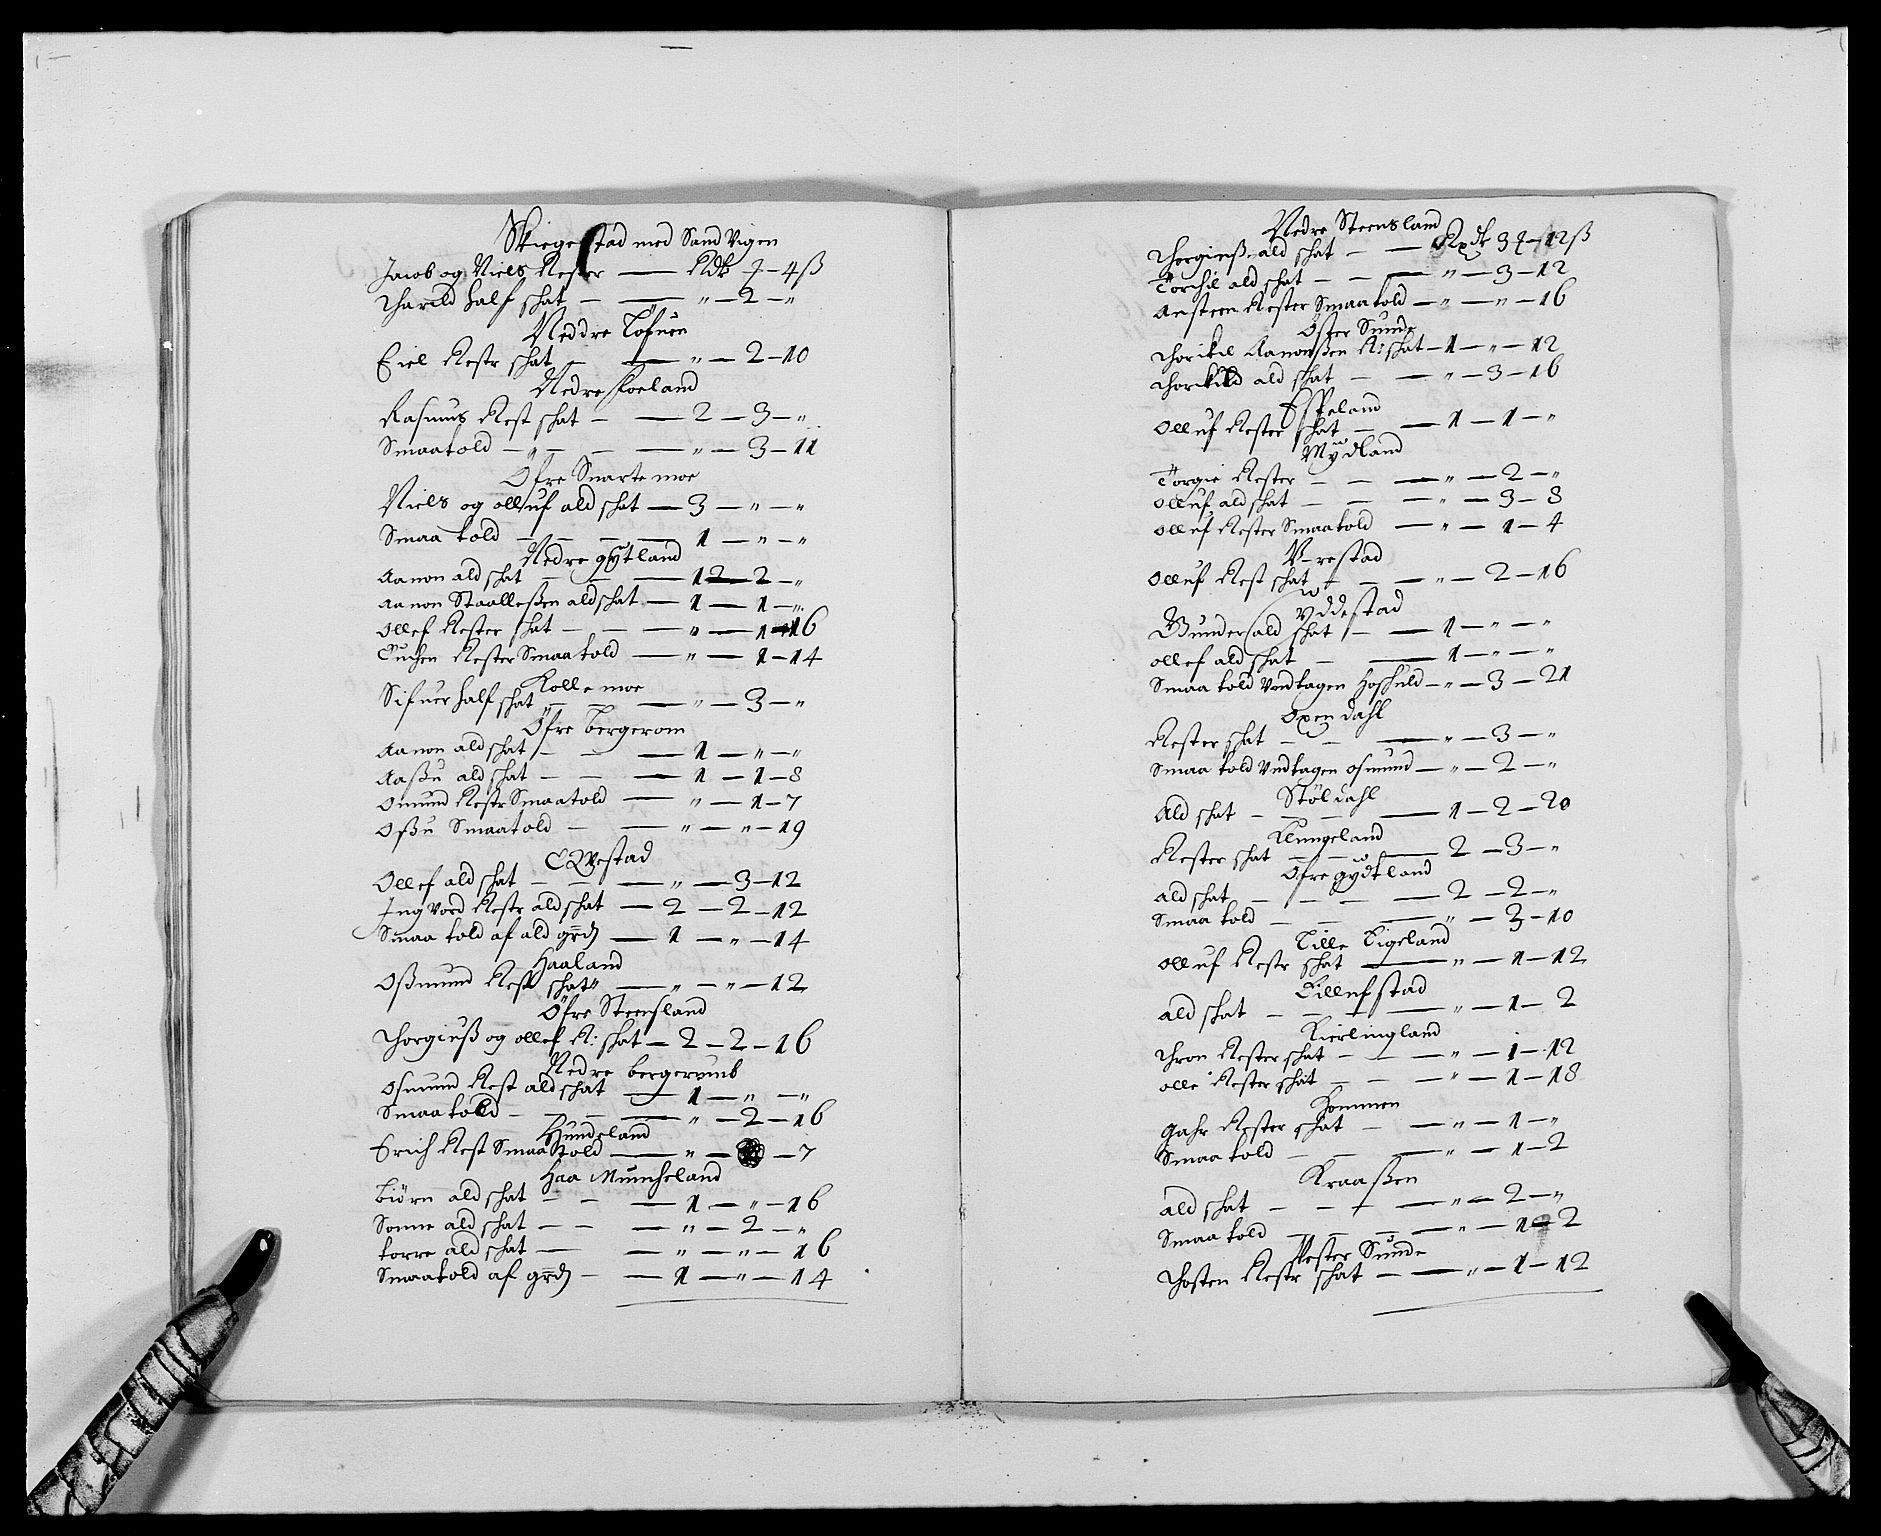 Skiegestad med Sand Vigen
Jacob og Niels Rester — Rdr 1 – 4 ß
Tharild half schat — — " — 2 — "
Neddre Töfuen
Eiel Restr schat — — " — 2 – 10
Nedre Koeland
Rasmus Rest schat — — 2 — 3 — "
Smaatold — " — — — " — 3 – 11
Öfre Suarte moe
Niels og olluf ald schat — 3 — " — "
Smaa told — — — — 1 — " — "
Nedre gÿtland
Aanon ald schat — — — 12 — 2 — "
Aanon Staalleßen ald schat — 1 — 1 — "
Ollef Rester schat — — — " — 1 – 16
Rester Smaa told — " — 1 – 14
Kolle moe
Sifuer half schat — — — " — 3 — "
Öfre bergerom
Aanon ald schat — — — 1 — " — "
Aaßu ald schat — — — 1 — 1 – 8
Omund Restr Smaatold — " — 1 – 7
Oßu Smaatold — — " — " – 19
Ollef ald schat — — — " — 3 – 12
Ingvord Restr ald schat — 2 — 2 – 12
Smaa told af ald grd — 1 — " – 14
Haaland
Oßmund Rest schat — " — " – 12
Öfre Steensland
Thorgiuß og ollef R: schat — 2 — 2 – 16
Nedre bergerumb
Osmund Rest ald schat — 1 — " — "
Smaa told — — — — " — 2 – 16
Hundeland
Erich Rest Smaa told — " — – 7
Haa Muncheland
Biörn ald schat — — — 1 — " – 16
Sonne ald schat — — — " — 2 — "
torre ald schat — — " — " – 16
Smaatold af grd — — 1 — " – 14
Nedre Steensland
Thorgiuß ald schat — — Rxdr 3 – 12 ß
Torchil ald schat — — — " — 3 – 12
Ansteen Rester Smaatold — " — " – 16
Öster Sunde
Thorikil Aanonßen R: schat – 1 — " – 12
Thorkild ald schat — — " — 3 – 16
Espeland
Olluf Rester schat — — 1 — 1 — "
Mÿdland
Torgie Rester — — — " — 2 — "
Olluf ald schat — — — " — 3 – 8
Olluf Rester Smaatold — " — 1 – 4
Vrestad
Olluf Rest schat — — — " — 2 – 16
Uddestad
Gunder ald schat — — 1 — " — "
ollef ald schat — — 1 — " — "
Smaa told Vndtagen – " — 3 – 21
Oxendahl
Rester schat — — — " — 3 — "
Smaa told Vndtagen osmund — " — 2 — "
Stöldahl
Ald schat — — — — 1 — 2 – 20
Klungeland
Rester schat — — — 2 — 3 — "
Öfre gÿdtland
ald schat — — — — 2 — 2 — "
Smaa told — — — " — 3 – 10
Lille Eigeland
Olluf Restr schat — " — 1 – 12
Eillefstad
ald schat — — — — " — 1 – 2
Kierlingland
Thron Rester schat — — — " — 1 – 12
olle Rester schat — — — " — 1 – 18
Hommen
Gahr Rester schat — — " — 1 — "
Smaa told — — — " — 1 – 2
Kraaßen
ald schat — — — — " — 2 — "
Smaa told — — — — " — 1 – 2
Vester Sunde
Thosten Restr schat — — " — 1 – 12